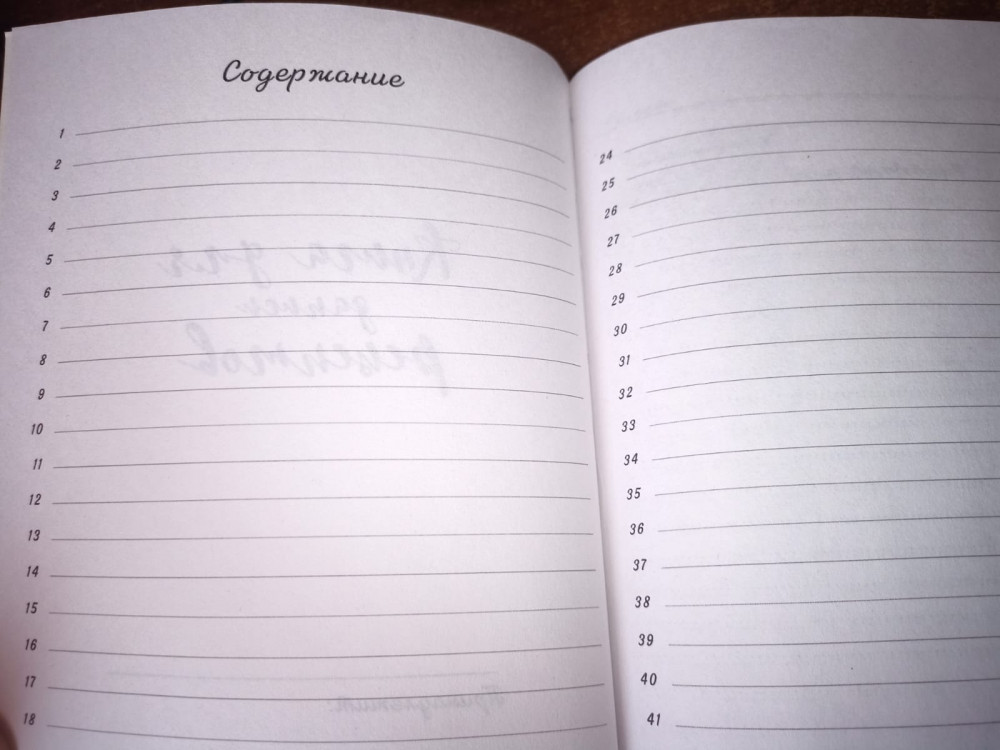 Содержание
1
2
3
4
5
6
7
8
9
10
11
12
13
14
15
16
17
18
24
25
26
27
28
29
30
31
32
33
34
35
36
37
38
39
40
41